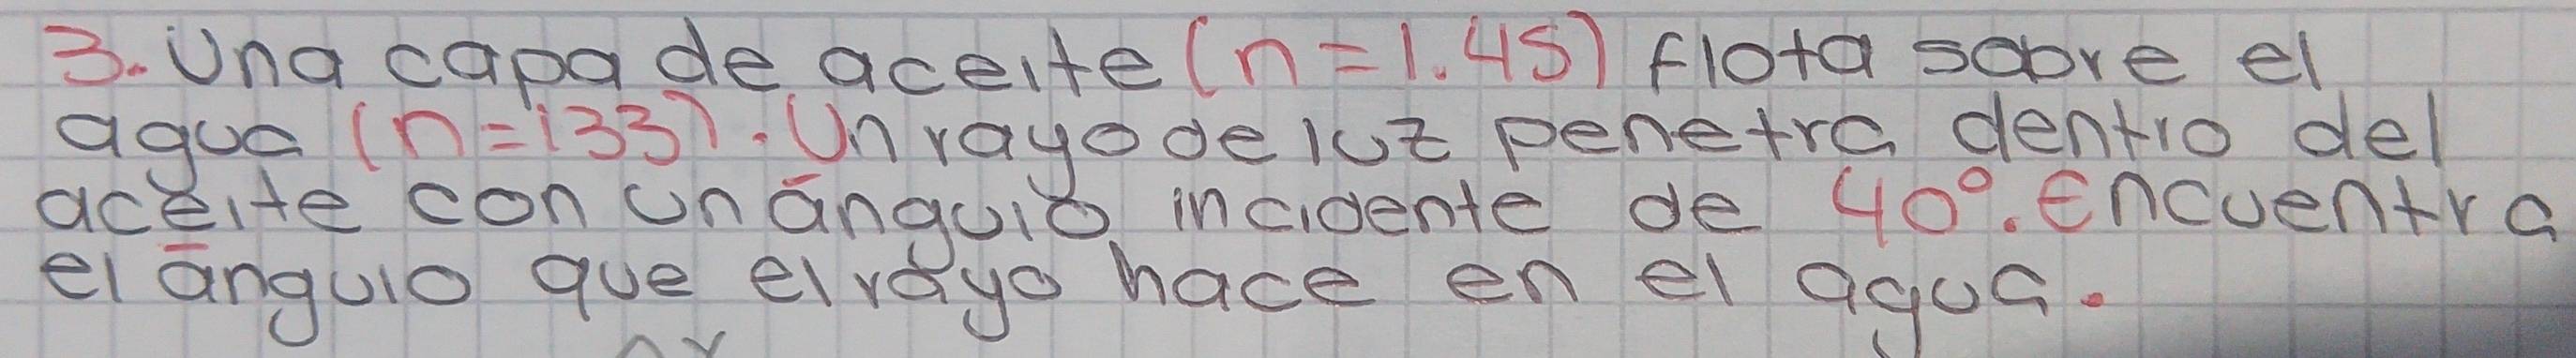 3. Una capa de aceite (n=1.45) flota sobre el
agua (n=133). Un rayo de luz penetra dentro del
aceite con un ángulo incidente de 40°. Encuentra
el ángulo que el rayo hace en el agua.